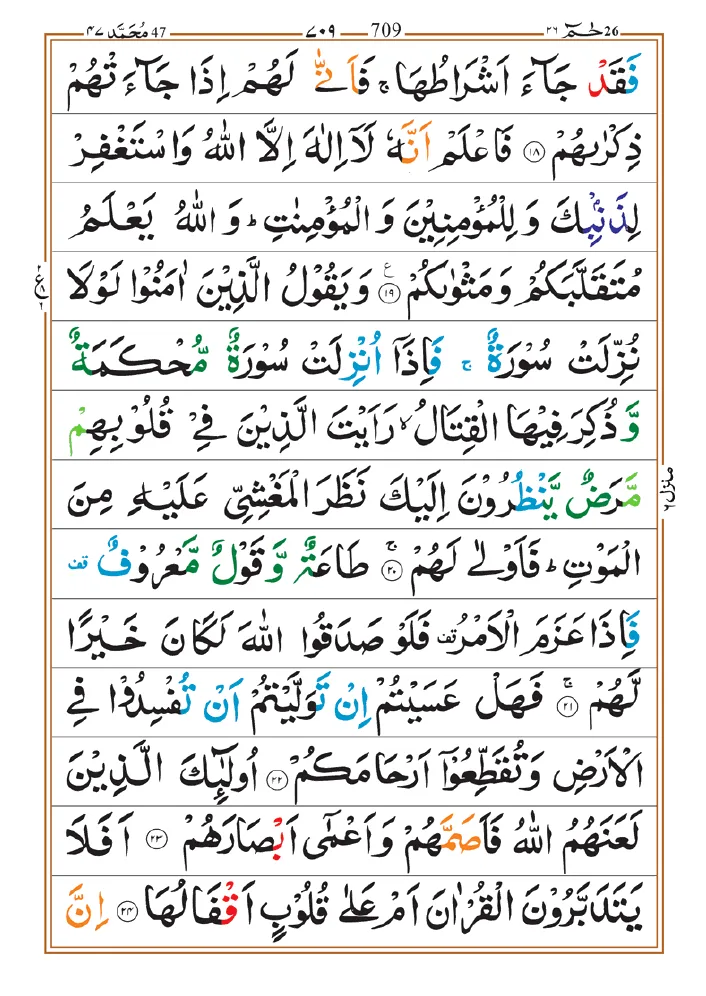 26 حٰمٓ ٢٦ 709 ٧٠٩ 47 مُحَمَّد ٤٧
فَقَدْ جَآءَ اَشْرَاطُهَا ۚ فَاَنّٰى لَهُمْ اِذَا جَآءَتْهُمْ
ذِكْرٰىهُمْ ﴿۱۸﴾ فَاعْلَمْ اَنَّهٗ لَاۤ اِلٰهَ اِلَّا اللّٰهُ وَاسْتَغْفِرْ
لِذَنْۢبِكَ وَ لِلْمُؤْمِنِيْنَ وَ الْمُؤْمِنٰتِ ؕ وَ اللّٰهُ يَعْلَمُ
مُتَقَلَّبَكُمْ وَ مَثْوٰىكُمْ ﴿۱۹﴾ وَ يَقُوْلُ الَّذِيْنَ اٰمَنُوْا لَوْلَا
ع ٨
نُزِّلَتْ سُوْرَةٌ ۚ فَاِذَاۤ اُنْزِلَتْ سُوْرَةٌ مُّحْكَمَةٌ
وَّ ذُكِرَ فِيْهَا الْقِتَالُ ۙ رَاَيْتَ الَّذِيْنَ فِيْ قُلُوْبِهِمْ
مَّرَضٌ يَّنْظُرُوْنَ اِلَيْكَ نَظَرَ الْمَغْشِيِّ عَلَيْهِ مِنَ
منزل ٦
الْمَوْتِ ؕ فَاَوْلٰى لَهُمْ ﴿۲۰﴾ۚ طَاعَةٌ وَّ قَوْلٌ مَّعْرُوْفٌ قف
فَاِذَا عَزَمَ الْاَمْرُ قف فَلَوْ صَدَقُوا اللّٰهَ لَكَانَ خَيْرًا
لَّهُمْ ﴿۲۱﴾ۚ فَهَلْ عَسَيْتُمْ اِنْ تَوَلَّيْتُمْ اَنْ تُفْسِدُوْا فِي
الْاَرْضِ وَ تُقَطِّعُوْۤا اَرْحَامَكُمْ ﴿۲۲﴾ اُولٰٓئِكَ الَّذِيْنَ
لَعَنَهُمُ اللّٰهُ فَاَصَمَّهُمْ وَ اَعْمٰۤى اَبْصَارَهُمْ ﴿۲۳﴾ اَفَلَا
يَتَدَبَّرُوْنَ الْقُرْاٰنَ اَمْ عَلٰى قُلُوْبٍ اَقْفَالُهَا ﴿۲۴﴾ اِنَّ